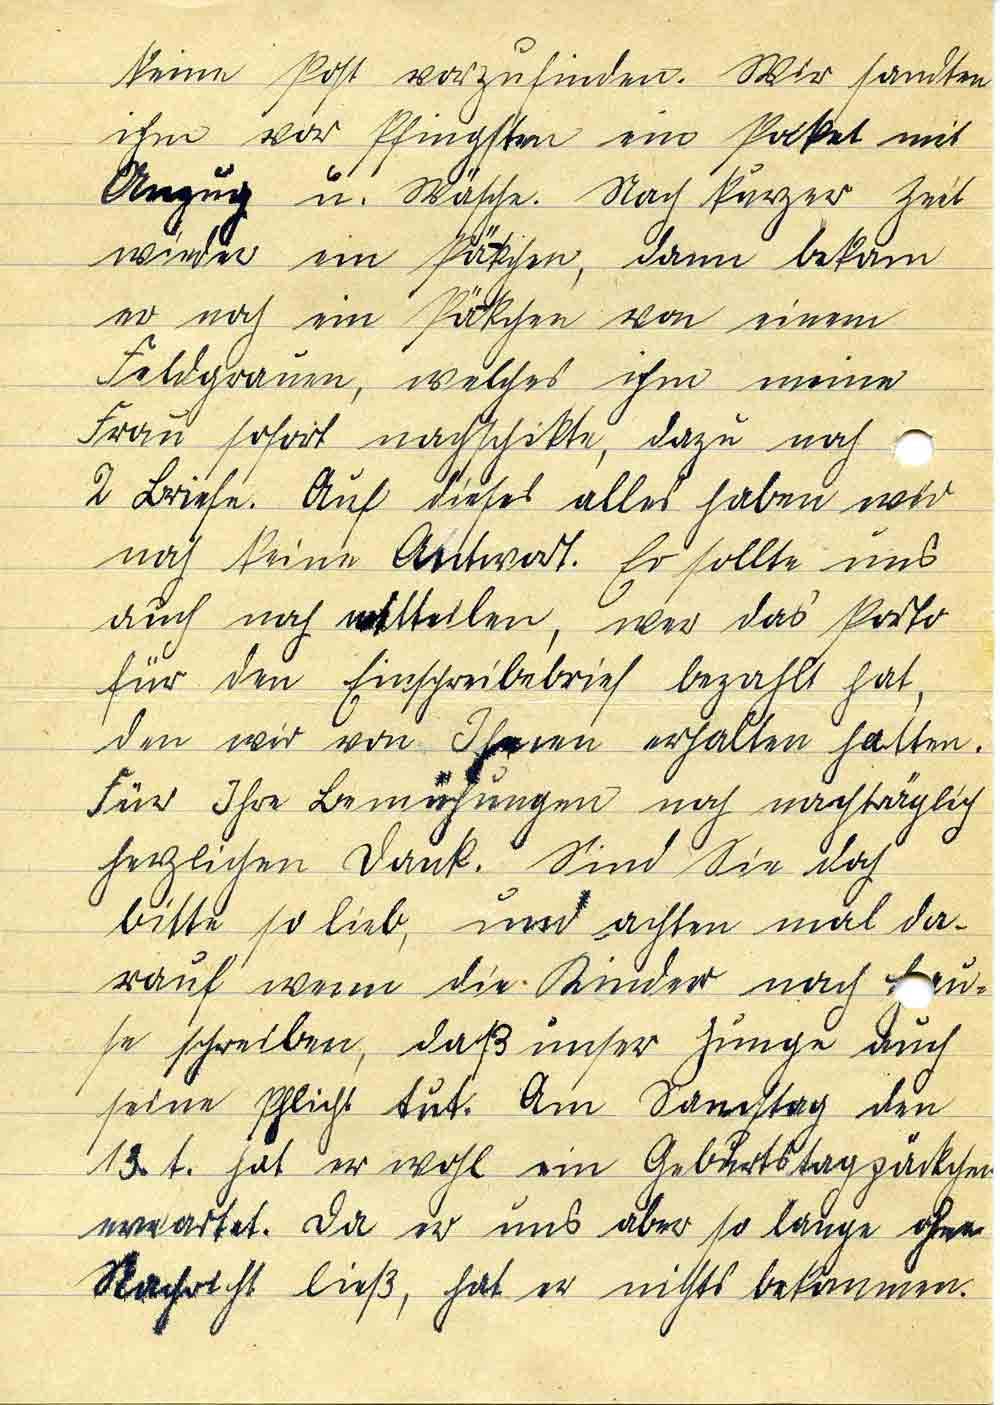 keine Post vorzufinden. Wir sandten
ihm vor Pfingsten ein Paket mit
Anzug u. Wäsche. Nach kurzer Zeit
wieder ein Päkchen, dann bekam
er noch ein Päkchen von einem
Feldgrauen, welches ihm meine
Frau sofort nachschikte, dazu noch
2 Briefe. Auf dieses alles haben wir
noch keine Antwort. Er sollte uns
auch noch mitteilen, wer das Porto
für den Einschreibebrief bezahlt hat,
den wir von Ihnen erhalten hatten.
Für Ihre Bemühungen noch nachträglich
herzlichen Dank. Sind Sie doch
bitte so lieb, und achten mal da-
rauf wenn die Kinder nach Hau-
se schreiben, daß unser Junge auch
seine Pflicht tut. Am Samstag den
13. t. hat er wohl ein Geburtstagpäckchen
erwartet. Da er uns aber so lange ohne
Nachricht ließ, hat er nichts bekommen.